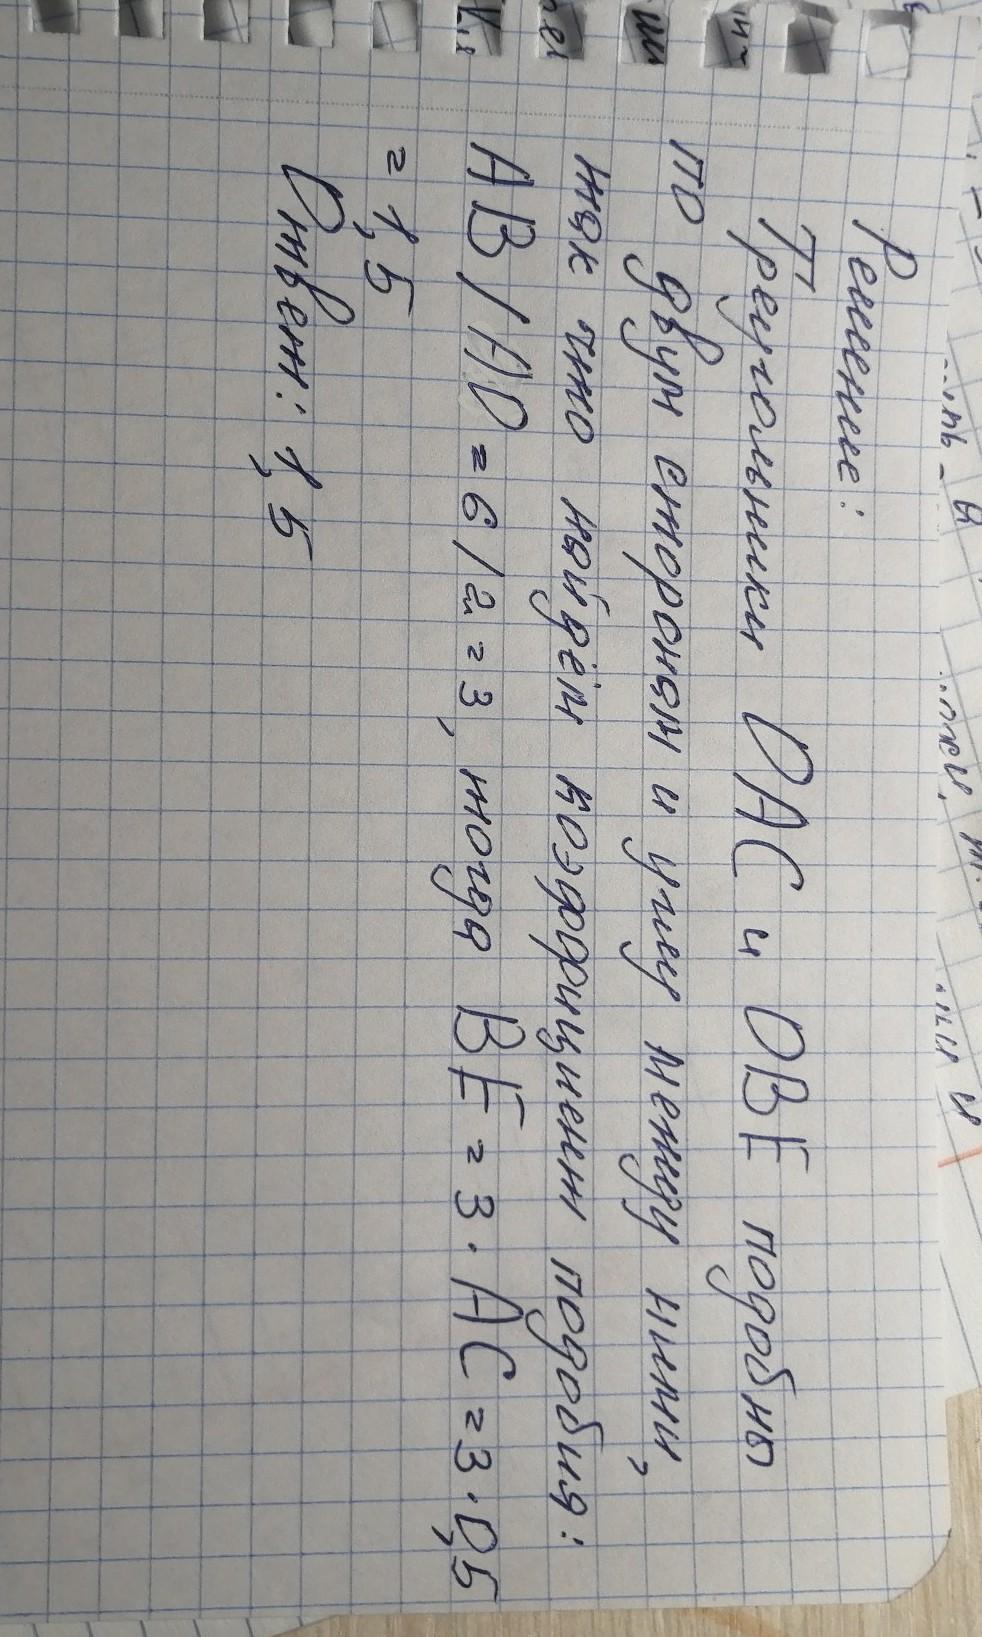 Решение:
Треугольники ОАС и ОВЕ подобны
по двум сторонам и углу между ними,
так что найдём коэффициент подобия:
АВ/АО = 6/2 = 3, тогда ВЕ = 3·АС = 3·0,5
= 1,5
Ответ: 1,5